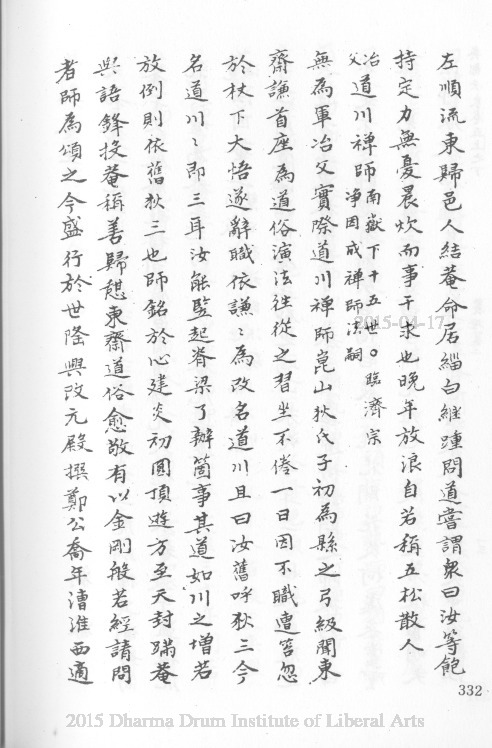 左順流東歸邑人結菴命居緇白継踵問道嘗謂衆曰汝等飽
持定力無憂晨炊而事干求也晚年放浪自若稱五松散人
冶父道川禪師南嶽下十五世。臨濟宗 淨因成禪師法嗣
無為軍冶父實際道川禪師崑山狄氏子初為縣之弓級聞東
齋謙首座為道俗演法往從之習坐不倦一日因不職遭笞忽
於杖下大悟遂辭職依謙〻為改名道川且曰汝舊呼狄三今
名道川〻即三耳汝能竪起脊梁了辦箇事其道如川之增若
放倒則依舊狄三也師銘於心建炎初圓頂遊方至天封蹣菴
與語鋒投菴稱善歸憩東齋道俗愈敬有以金剛般若經請問
者師為頌之今盛行於世隆興改元殿撰鄭公喬年漕淮西適
332
2015-04-17
2015 Dharma Drum Institute of Liberal Arts